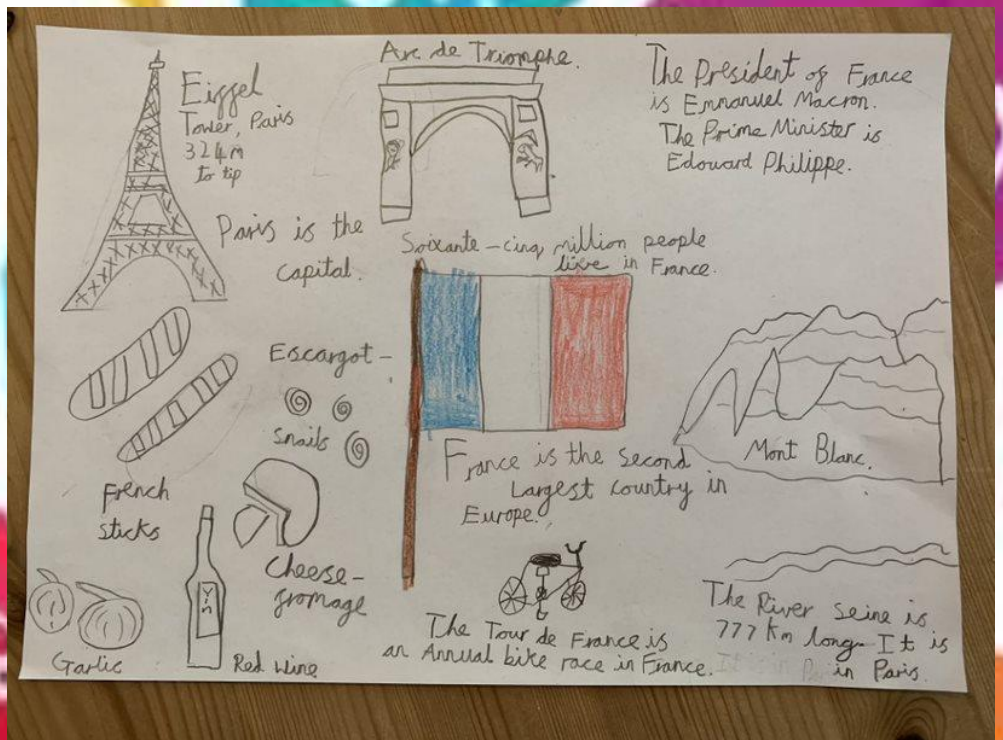 Eiffel
Tower, Paris
324m
to tip
Arc de Triomphe.
The President of France
is Emmanuel Macron.
The Prime Minister is
Edouard Philippe.
Paris is the
capital.
Soixante-cinq million people
live in France.
Escargot-
snails
French
sticks
Cheese-
fromage
France is the second
Largest country in
Europe.
Mont Blanc.
Garlic
Vin
Red wine
The Tour de France is
an Annual bike race in France.
The River Seine is
777 km long. It is
in Paris.